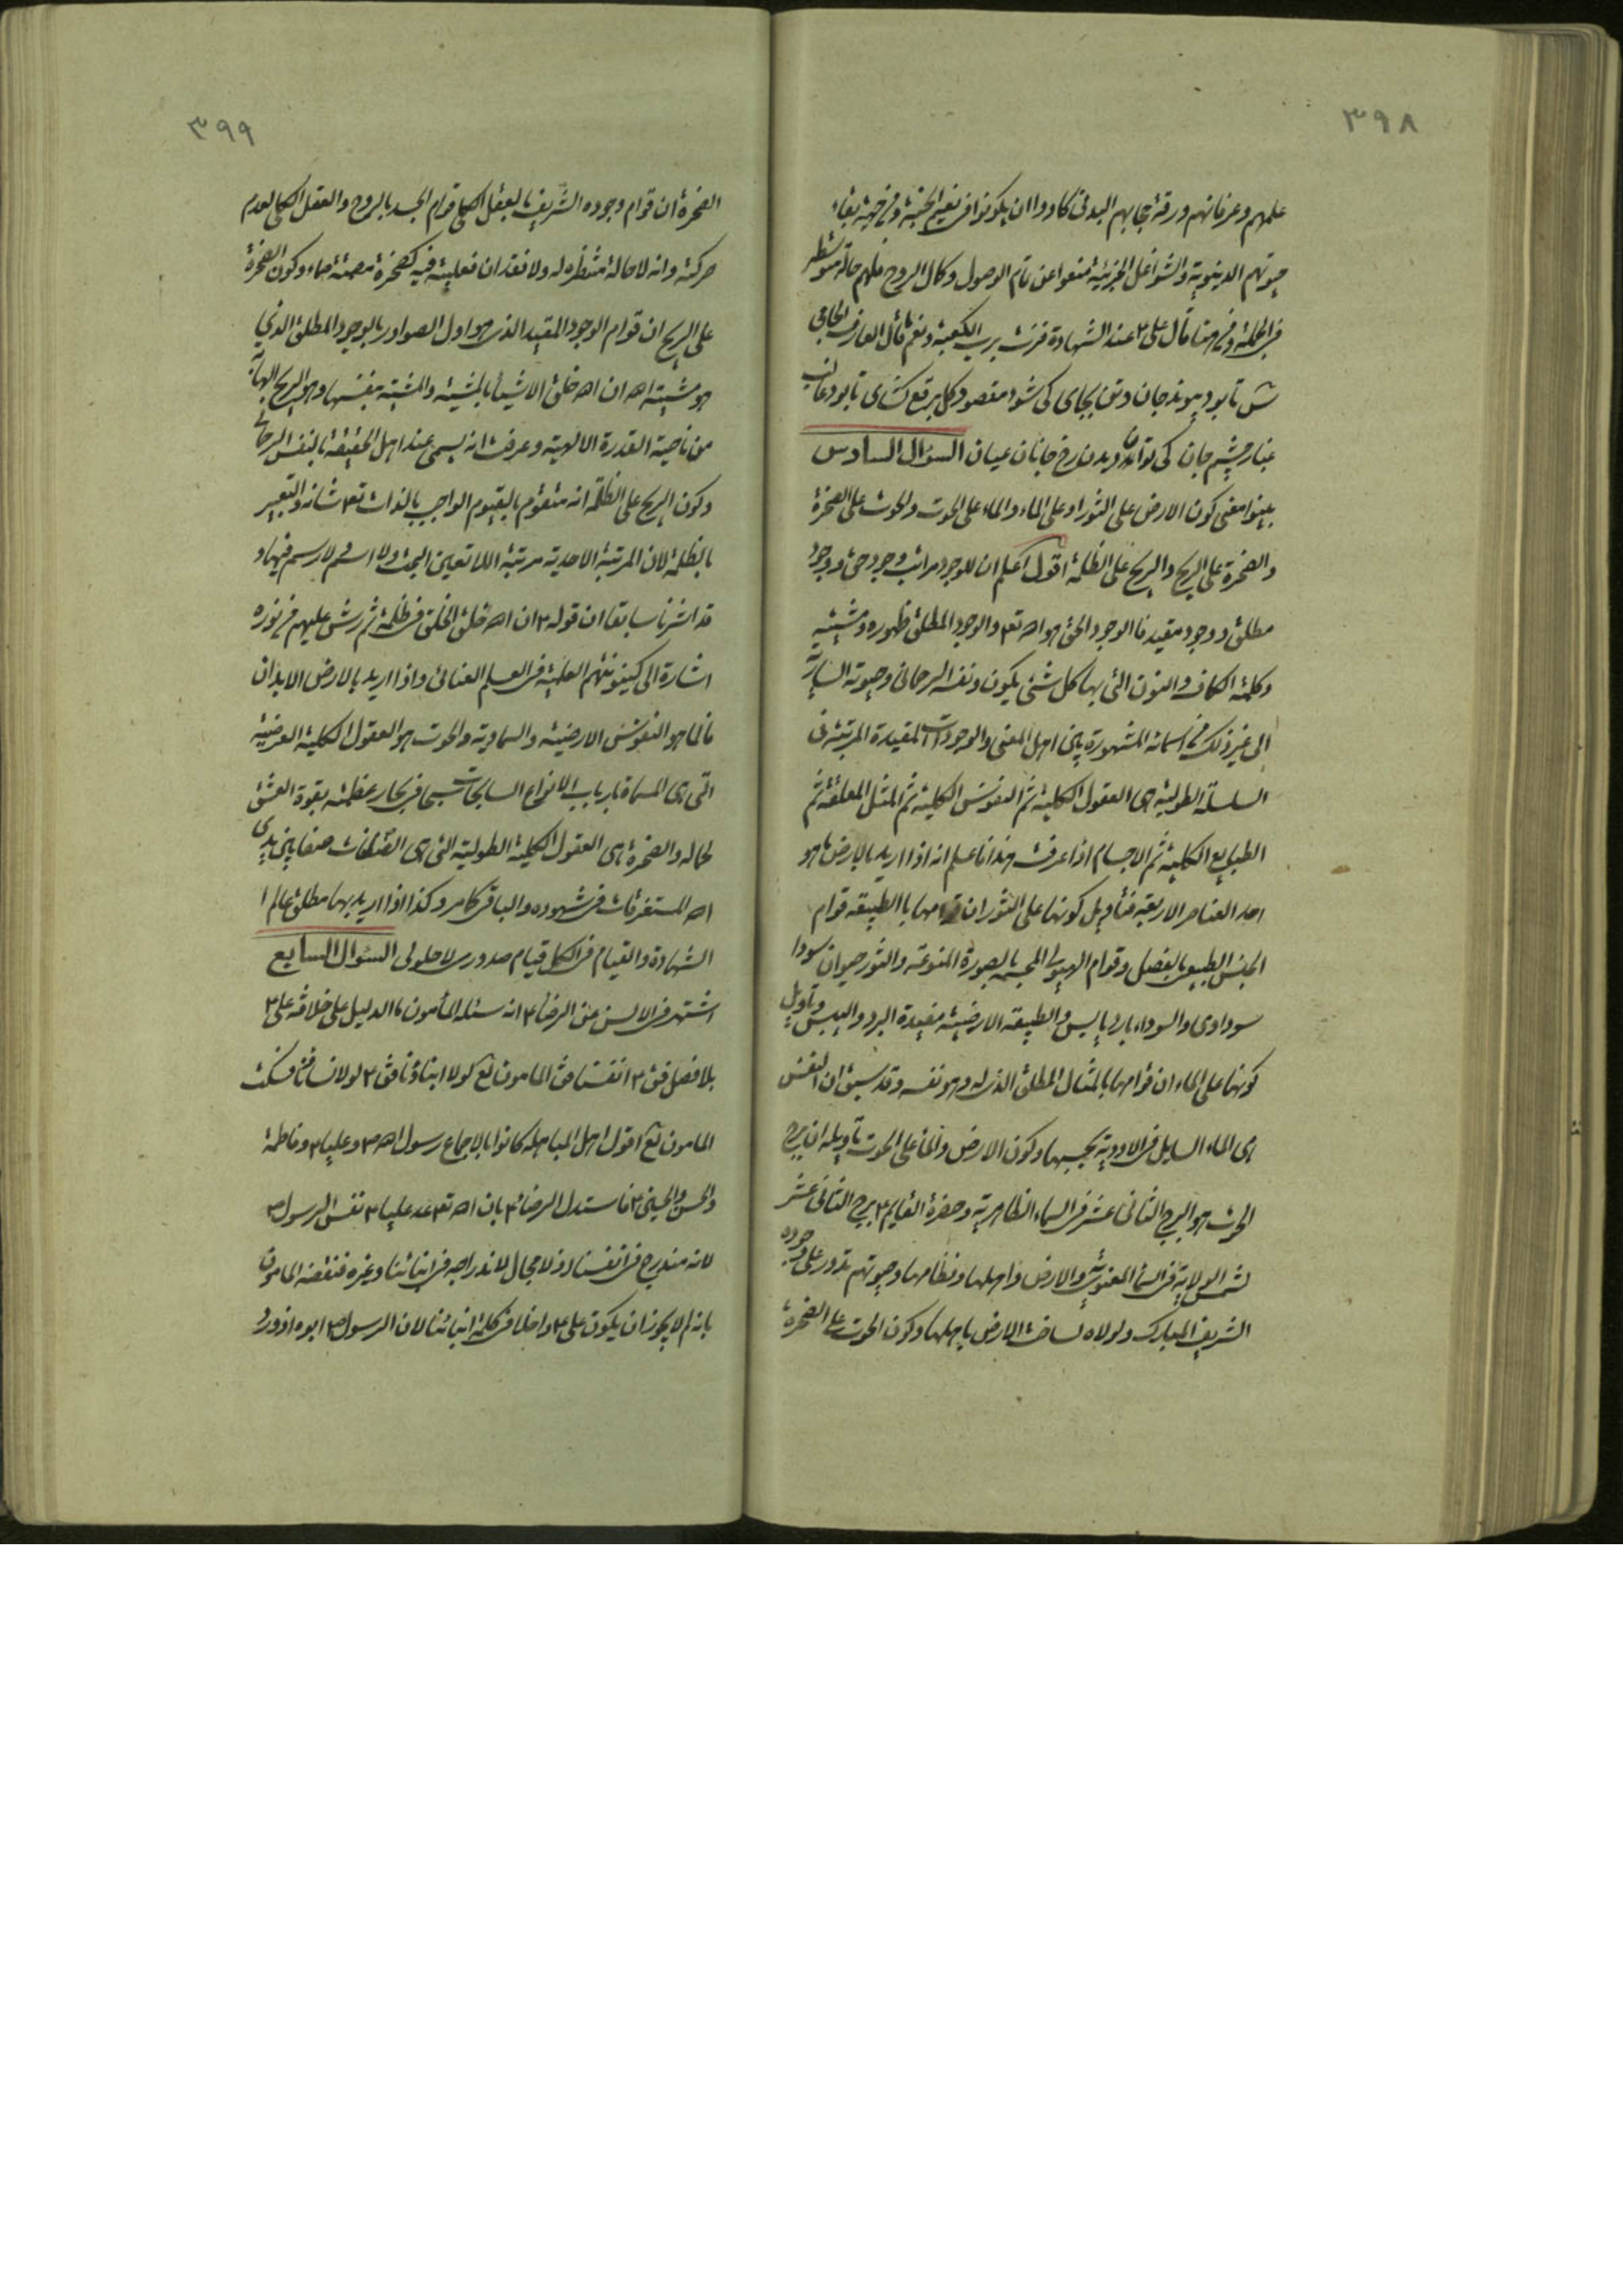 ٣٩٨
علمهم وعرفانهم ورقة حجابهم البدنى كادوا ان يكونوا فى نعيم الجنة ومن جهة بقاء
حيوتهم الدنيوية والشواغل الجزئية منعوا عن تام الوصول وكمال الروح فلهم حالة متوسطة
فى الجملة ومن هنا قال على ع عند الشهادة فزت برب الكعبة ونعم ما قال العارف الجامى
ش تا بود پيوند جان وتن بجاى كى شود مقصود كل برقع گشاى تا بود غالب
غبار چشم جان كى توان ديدن رخ جانان عيان السؤال السادس
بينوا معنى كون الارض على الثور او على الماء والماء على الحوت والحوت على الصخرة
والصخرة على الريح والريح على الظلمة اقول اعلم ان للوجود مراتب وجود حق ووجود
مطلق ووجود مقيد فالوجود الحق هو الله تع والوجود المطلق ظهوره ومشيته
وكلمة الكاف والنون التى بها كل شئ يكون ونفسه الرحمانى وحيوته السارية
الى غير ذلك من اسمائه المشهورة بين اهل المعنى والوجودات المقيدة المرتبة فى
السلسلة الطولية هى العقول الكلية ثم النفوس الكلية ثم المثل المعلقة ثم
الطبايع الكلية ثم الاجسام اذا عرفت هذا فاعلم انه اذا اريد بالارض ما هو
احد العناصر الاربعة فتأويل كونها على الثور ان قوامها بالطبيعة قوام
الجنس الطبيعى بالفصل وقوام الهيولى المجسمة بالصورة المنوعة والثور حيوان سودا
سوداوى والسوداء بارد يابس والطبيعة الارضية مفيدة البرد واليبس وتأويل
كونها على الماء ان قوامها بالمثال المطلق الذى له وهو نفسه وقد سبق ان النفس
هى الماء السايل فى الاودية بحسبها وكون الارض والماء على الحوت تأويله ان برج
الحوت هو البرج الثانى عشر فى السماء الظاهرية وحضرة القايم ع برج الثانى عشر
لشمس الولاية فى السماء المعنوية والارض واهلها ونظامها وحيوتهم تدور على وجوده
الشريف المبارك ولولاه لساخت الارض باهلها وكون الحوت على الصخرة
٣٩٩
الصخرة ان قوام وجوده الشريف بالعقل الكلى قوام الجسد بالروح والعقل الكلى لعدم
حركته وانه لا حالة منتظرة له ولا فقدان فعلية فيه كصخرة مصمتة صماء وكون الصخرة
على الريح ان قوام الوجود المقيد الذى هو اول الصوادر بالوجود المطلق الذى
هو مشية الله ان الله خلق الاشيأ بالمشية والمشية بنفسها وهو الريح الهابة
من ناحية القدرة الالهية وعرفت انه يسمى عند اهل الحقيقة بالنفس الرحمانى
وكون الريح على الظلمة انه متقوم بالقيوم الواجب بالذات تع شانه والتعبير
بالظلمة لان المرتبة الاحدية مرتبة اللاتعين البحت ولا اسم ولا رسم فيها و
قد اشرنا سابقا ان قوله ع ان الله خلق الخلق فى ظلمة ثم رش عليهم من نوره
اشارة الى كينونتهم العلمية فى العلم العنائى واذا اريد بالارض الابدان
فالماء هو النفوس الارضية والسماوية والحوت هو العقول الكلية العرضية
التى هى المسماة بارباب الانواع السابحات سبحا فى بحار عظمته بقوة العشق
لجماله والصخرة هى العقول الكلية الطولية التى هى القائمات صفا بين يدى
الله المستغرقات فى شهوده والباقى كما مر وكذا اذا اريد بها مطلق عالم ا
الشهادة والقيام فى الكل قيام صدورى لا حلولى السؤال السابع
اشتهر فى الالسن عن الرضا ع انه سئله المأمون ما الدليل على خلافة على ع
بلا فصل فق ع انفسنا فق المامون لع لولا ابناؤنا فق ع لولا نساؤنا فسكت
المامون لع اقول اهل المباهلة كانوا بالاجماع رسول الله ص وعليا ع وفاطمة
والحسن والحسين ع فاستدل الرضا ع بان الله تع عد عليا ع نفس الرسول ص
لانه مندرج فى انفسنا اذ لا مجال لاندراجه فى ابنائنا وغيره فنقضه المامون
بانه لم لا يجوز ان يكون على ع داخلا فى كلمة ابنائنا لان الرسول ص ابوه اذ ورد